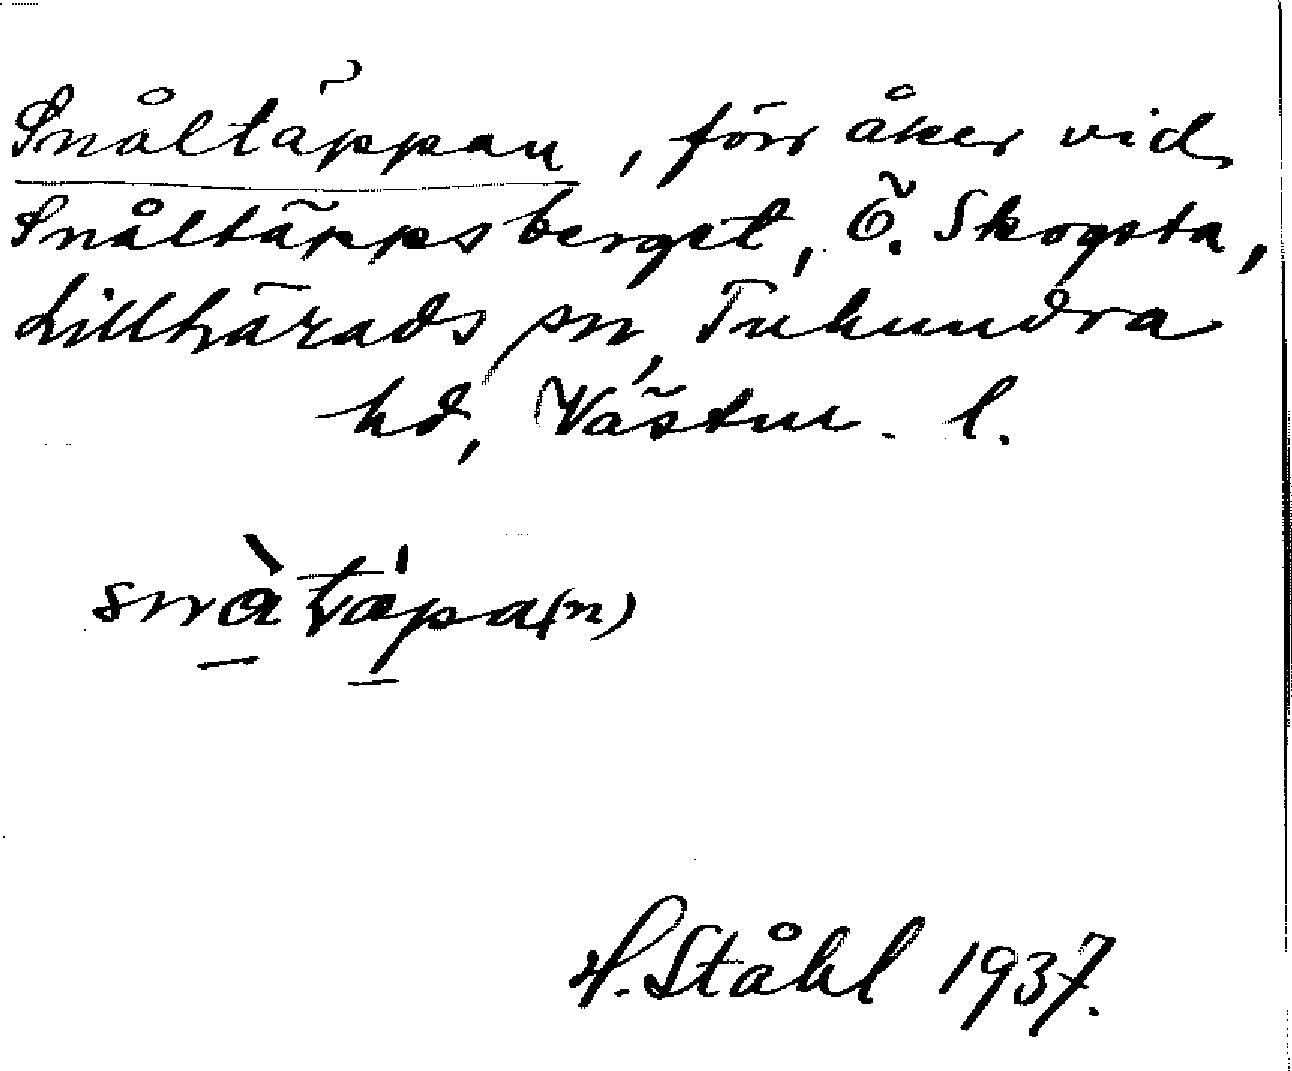 Snåltäppan, förr åker vid
Snåltäppsberget, Ö. Skogsta,
Lillhärads sn, Tuhundra
hd, Västm. l.
H. Ståhl 1937.